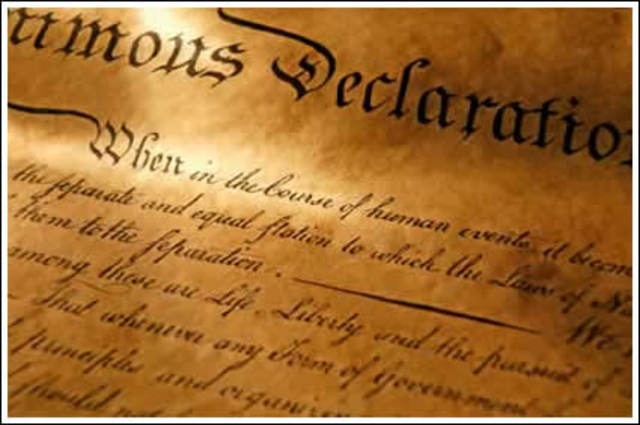 nimous Declaration
When in the Course of human events, it becom
the separate and equal station to which the Laws of Na
them to the separation. We
among these are Life, Liberty and the pursuit of
That whenever any Form of Government
principles and organizing
should not